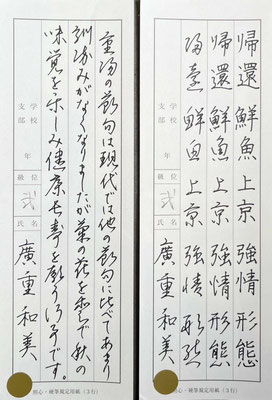 帰還鮮魚上京強情形態
帰還鮮魚上京強情形態
帰還鮮魚上京強情形態
学校
支部
年
級位
弐
氏名
廣重和美
硬筆規定用紙(3行)
重陽の節句は現代では他の節句に比べてあまり
馴染みがなくなりましたが菊の花を愛で秋の
味覚を楽しみ健康長寿を願う行事です。
学校
支部
年
級位
弐
氏名
廣重和美
硬筆規定用紙(3行)